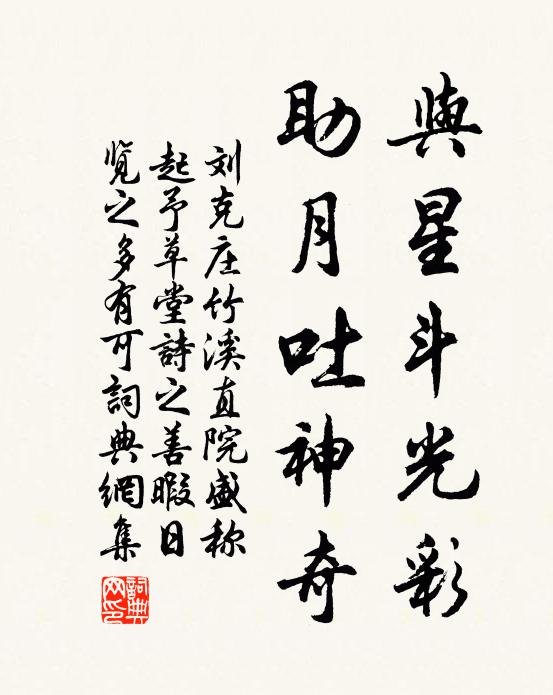 與星斗光彩
助月吐神奇
刘克庄竹溪直院盛称
起予草堂詩之善暇日
覽之多有可詞典網集
詞典網印